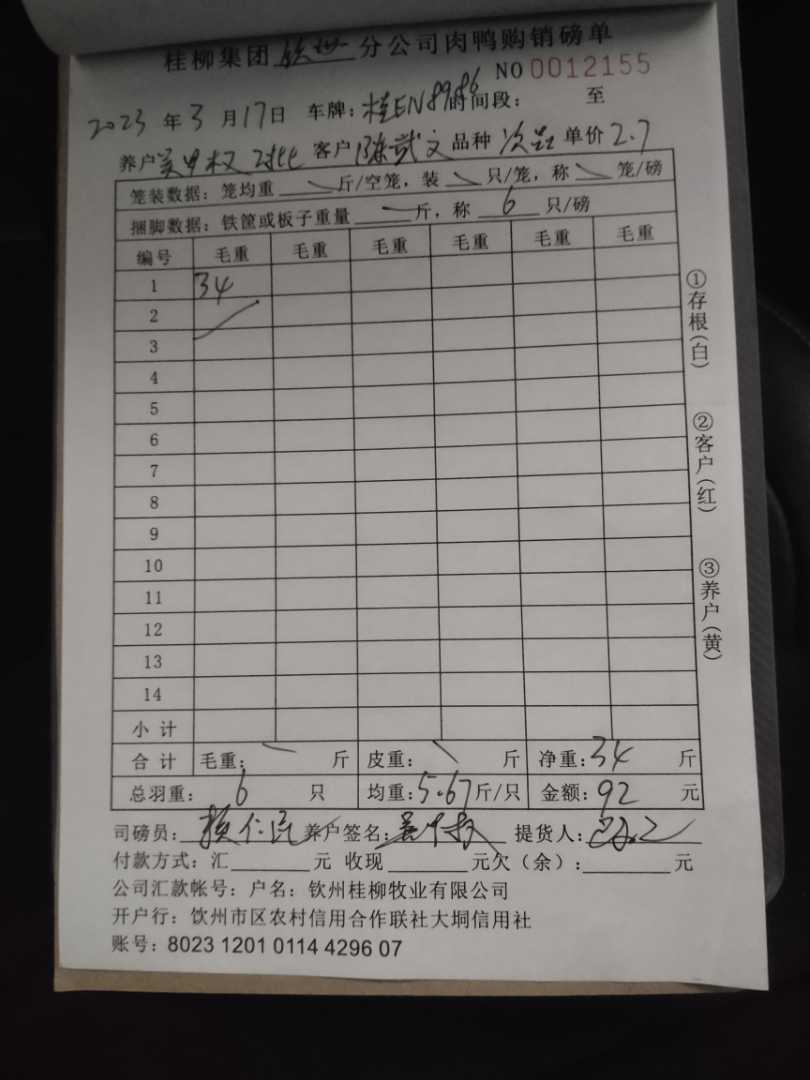 桂柳集团 钦州 分公司肉鸭购销磅单
NO 0012155
2023 年 3 月 17 日 车牌：桂EN8986 时间段： 至
养户 客户 陈武文 品种 次品 单价 2.7
笼装数据：笼均重 斤/空笼，装 只/笼，称 笼/磅
捆脚数据：铁筐或板子重量 斤，称 6 只/磅
编号 毛重 毛重 毛重 毛重 毛重 毛重
1 34
2
3
4
5
6
7
8
9
10
11
12
13
14
小 计
合 计 毛重： 斤 皮重： 斤 净重：34 斤
总羽重： 6 只 均重：5.67 斤/只 金额：92 元
司磅员： 养户签名： 提货人：
付款方式：汇 元 收现 元欠（余）： 元
公司汇款帐号：户名：钦州桂柳牧业有限公司
开户行：钦州市区农村信用合作联社大垌信用社
账号：8023 1201 0114 4296 07
①存根（白）
②客户（红）
③养户（黄）